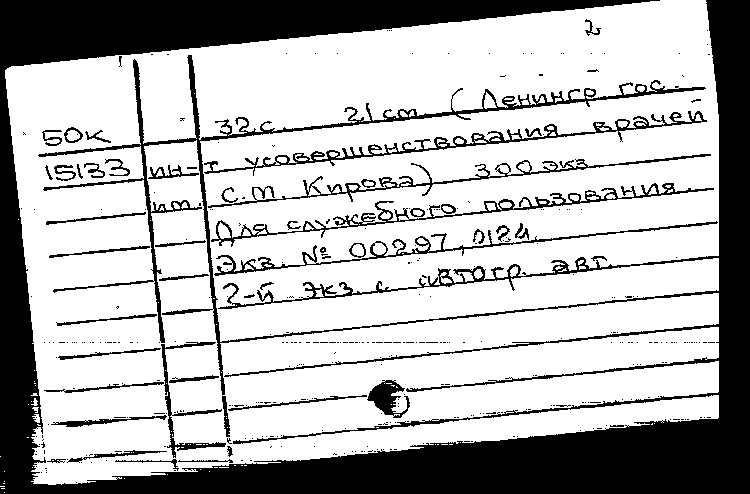 2
50к 32 с. 21 cm (Ленингр. гос.
15133 ин-т усовершенствования врачей
им. С.М. Кирова) 300 экз
Для служебного пользования.
Экз. № 00297, 0124.
2-й экз. с автогр. авт.